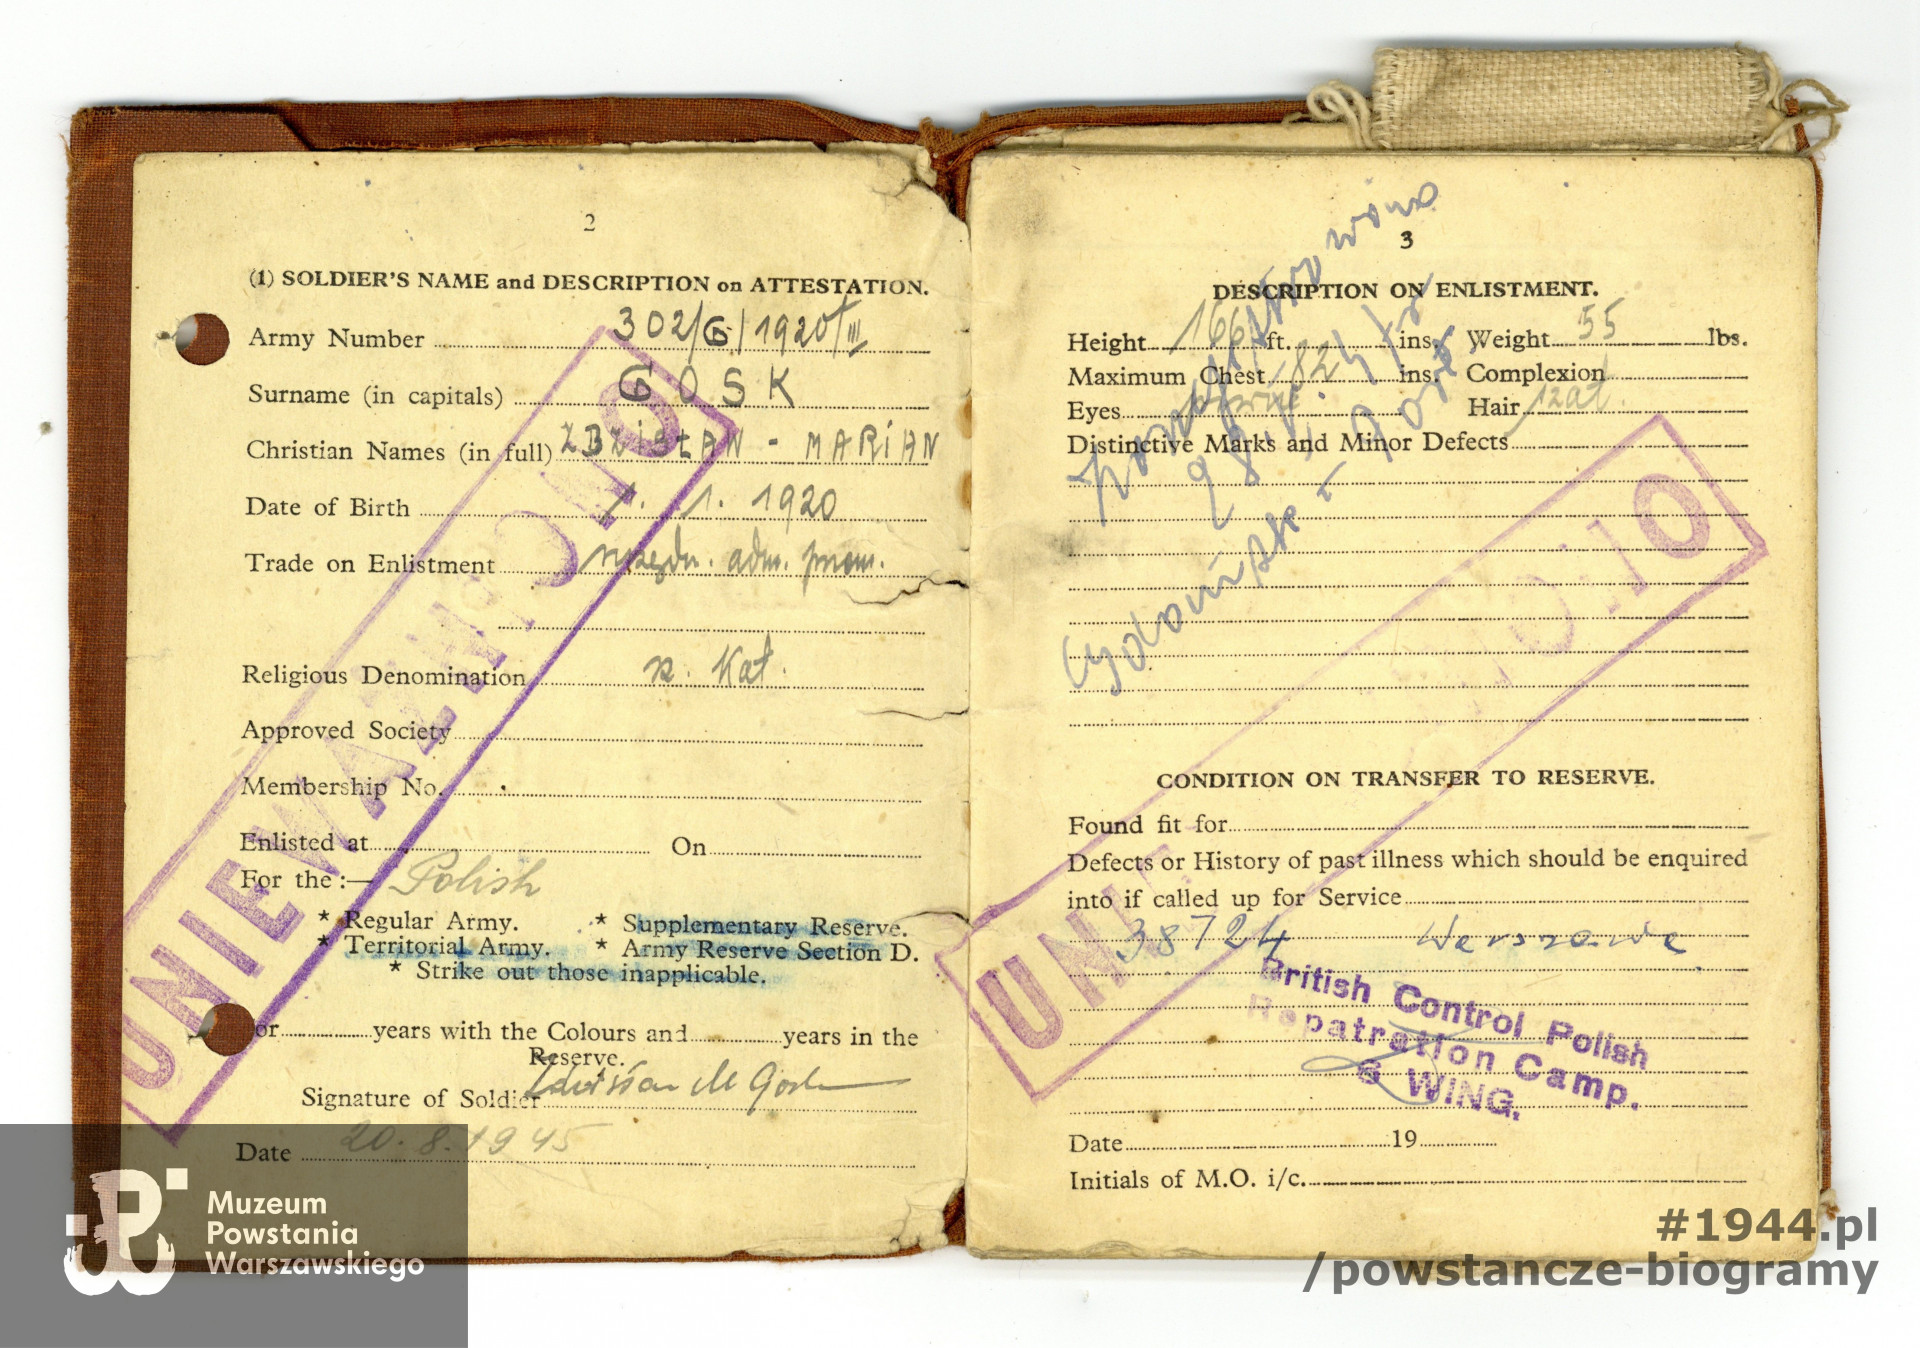 2
(1) SOLDIER'S NAME and DESCRIPTION on ATTESTATION.
Army Number 302/G/1920/III
Surname (in capitals) GOSK
Christian Names (in full) - MARIAN
Date of Birth 1. 1. 1920
Trade on Enlistment urzędn. adm.
Religious Denomination rz. Kat.
Approved Society
Membership No.
Enlisted at On
For the:— Polish
* Regular Army. * Supplementary Reserve.
* Territorial Army. * Army Reserve Section D.
* Strike out those inapplicable.
or years with the Colours and years in the
Reserve.
Signature of Soldier M Gosk
Date 20.8.1945
UNIEWAŻNIONO
3
DESCRIPTION ON ENLISTMENT.
Height 166 ft. ins. Weight 55 lbs.
Maximum Chest 82 ins. Complexion
Eyes Hair
Distinctive Marks and Minor Defects
CONDITION ON TRANSFER TO RESERVE.
Found fit for
Defects or History of past illness which should be enquired
into if called up for Service
38724 Warszawa
British Control Polish
Repatration Camp.
6 WING.
Date 19
Initials of M.O. i/c.
Muzeum
Powstania
Warszawskiego
#1944.pl
/powstancze-biogramy